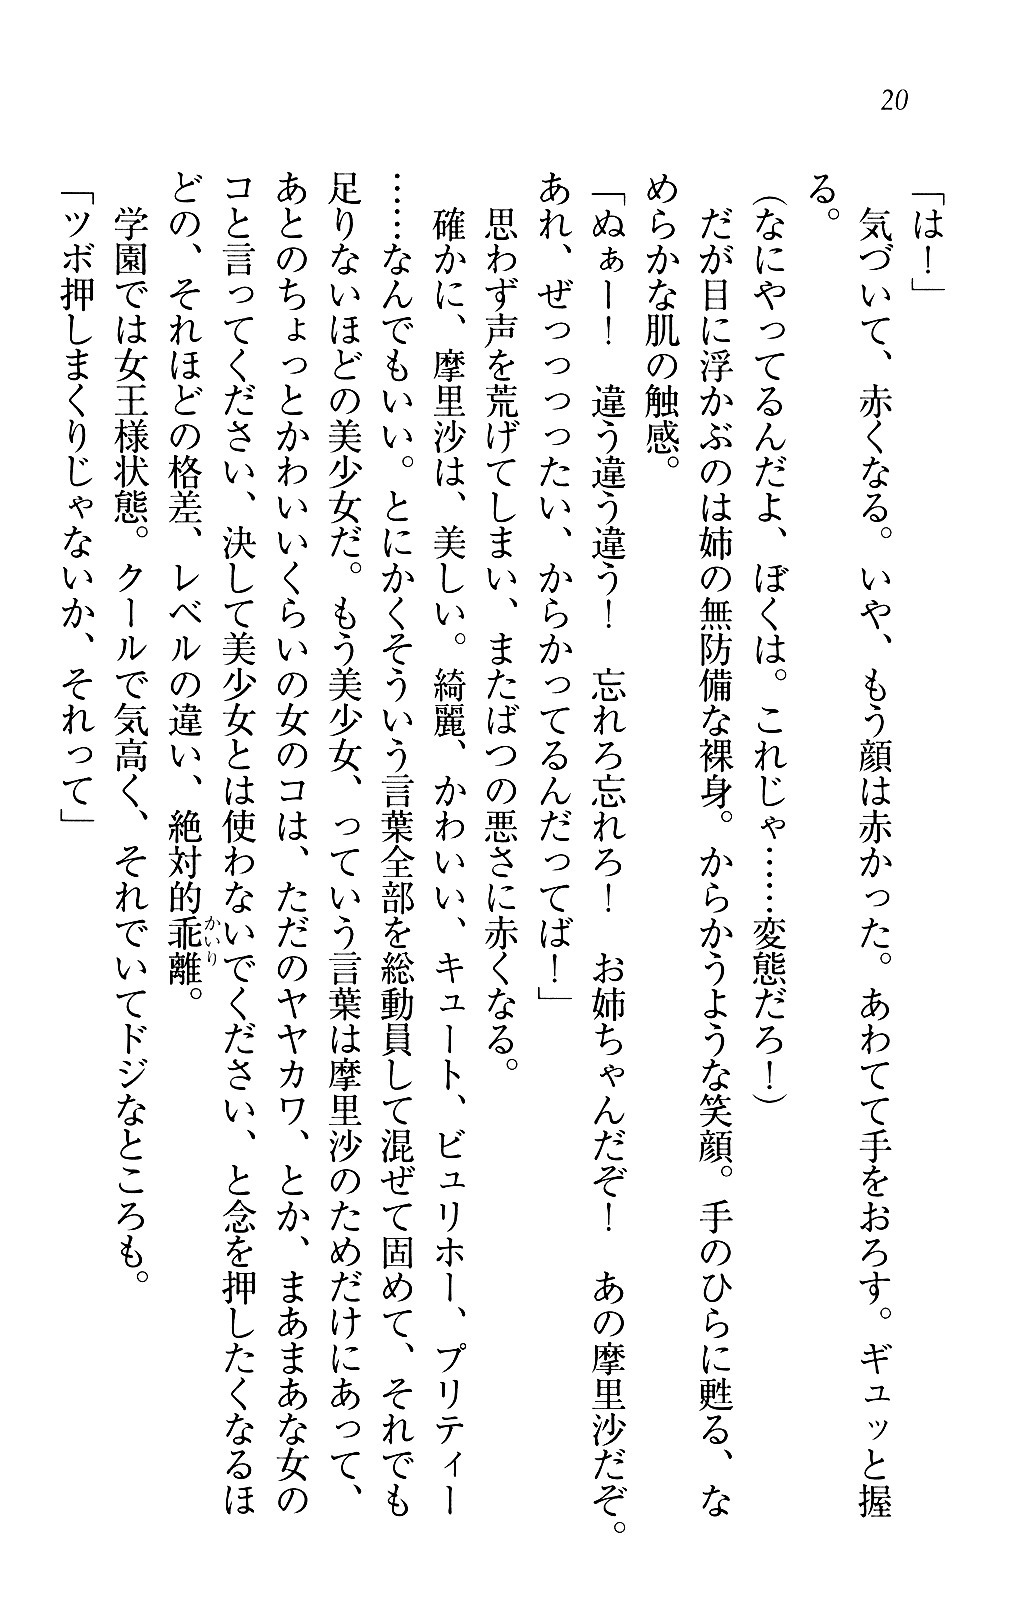 20
「は！」
　気づいて、赤くなる。いや、もう顔は赤かった。あわてて手をおろす。ギュッと握
る。
（なにやってるんだよ、ぼくは。これじゃ……変態だろ！）
　だが目に浮かぶのは姉の無防備な裸身。からかうような笑顔。手のひらに甦る、な
めらかな肌の触感。
「ぬぁー！　違う違う違う！　忘れろ忘れろ！　お姉ちゃんだぞ！　あの摩里沙だぞ。
あれ、ぜっっっったい、からかってるんだってば！」
　思わず声を荒げてしまい、またばつの悪さに赤くなる。
　確かに、摩里沙は、美しい。綺麗、かわいい、キュート、ビュリホー、プリティー
……なんでもいい。とにかくそういう言葉全部を総動員して混ぜて固めて、それでも
足りないほどの美少女だ。もう美少女、っていう言葉は摩里沙のためだけにあって、
あとのちょっとかわいいくらいの女のコは、ただのヤヤカワ、とか、まあまあな女の
コと言ってください、決して美少女とは使わないでください、と念を押したくなるほ
どの、それほどの格差、レベルの違い、絶対的乖離（かいり）。
　学園では女王様状態。クールで気高く、それでいてドジなところも。
「ツボ押しまくりじゃないか、それって」